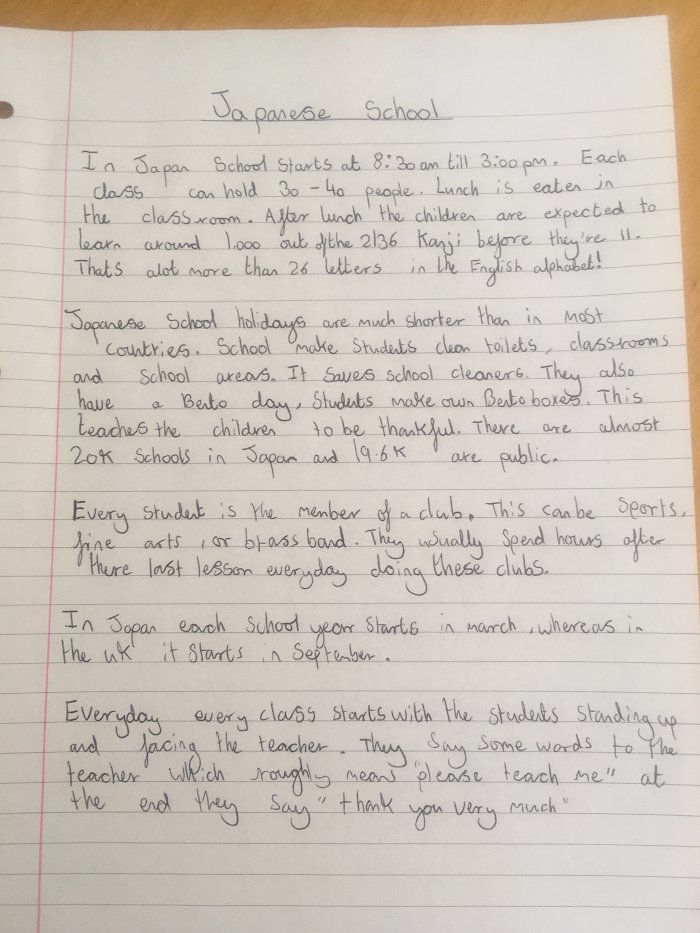 Japanese School
In Japan School starts at 8:30am till 3:00pm. Each
class can hold 30-40 people. Lunch is eaten in
the classroom. After lunch the children are expected to
learn around 1.000 out of the 2136 Kanji before they're 11.
Thats alot more than 26 letters in the English alphabet!
Japanese School holidays are much shorter than in most
countries. School make Students clean toilets, classrooms
and School areas. It saves school cleaners. They also
have a Bento day, Students make own Bento boxes. This
teaches the children to be thankful. There are almost
20K Schools in Japan and 19.6K are public.
Every student is the member of a club. This can be sports,
fine arts, or brass band. They usually spend hours after
there last lesson everyday doing these clubs.
In Japan each School year starts in march, whereas in
the uk it starts in September.
Everyday every class starts with the students standing up
and facing the teacher. They say some words to the
teacher which roughly means "please teach me" at
the end they say "thank you very much"